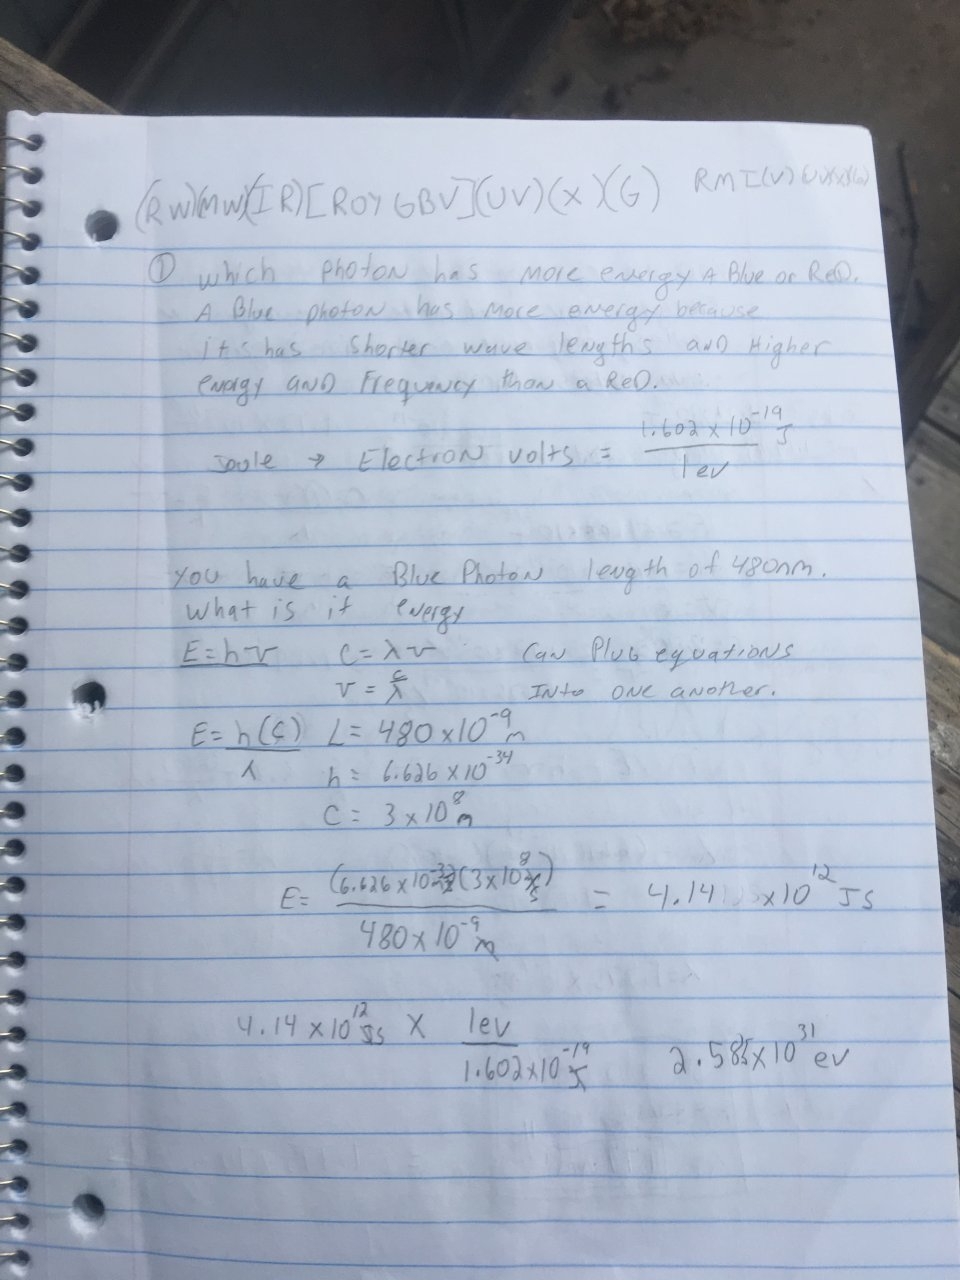 (RW)(MW)(IR)[ROYGBV](UV)(X)(G) RMI(V)UV(X)(G)
① which photon has more energy A Blue or ReD.
A Blue photon has more energy because
it's has shorter wave lengths anD Higher
energy anD Frequency than a ReD.
Joule → Electron volts = 1.602 x 10^-19 J / 1 ev
You have a Blue Photon length of 480nm.
What is it energy
E=hv C=λv Can Plug equations
v = c/λ Into one another.
E= h(c)/λ L= 480 x10^-9 m
h= 6.626 x10^-34
C= 3 x 10^8 m
E= (6.626 x 10 (3x10^8 m/s) / 480 x 10^-9 m = 4.14 x10^12 JS
4.14 x10^12 Js X 1ev / 1.602x10^-19 J 2.585x10^31 ev